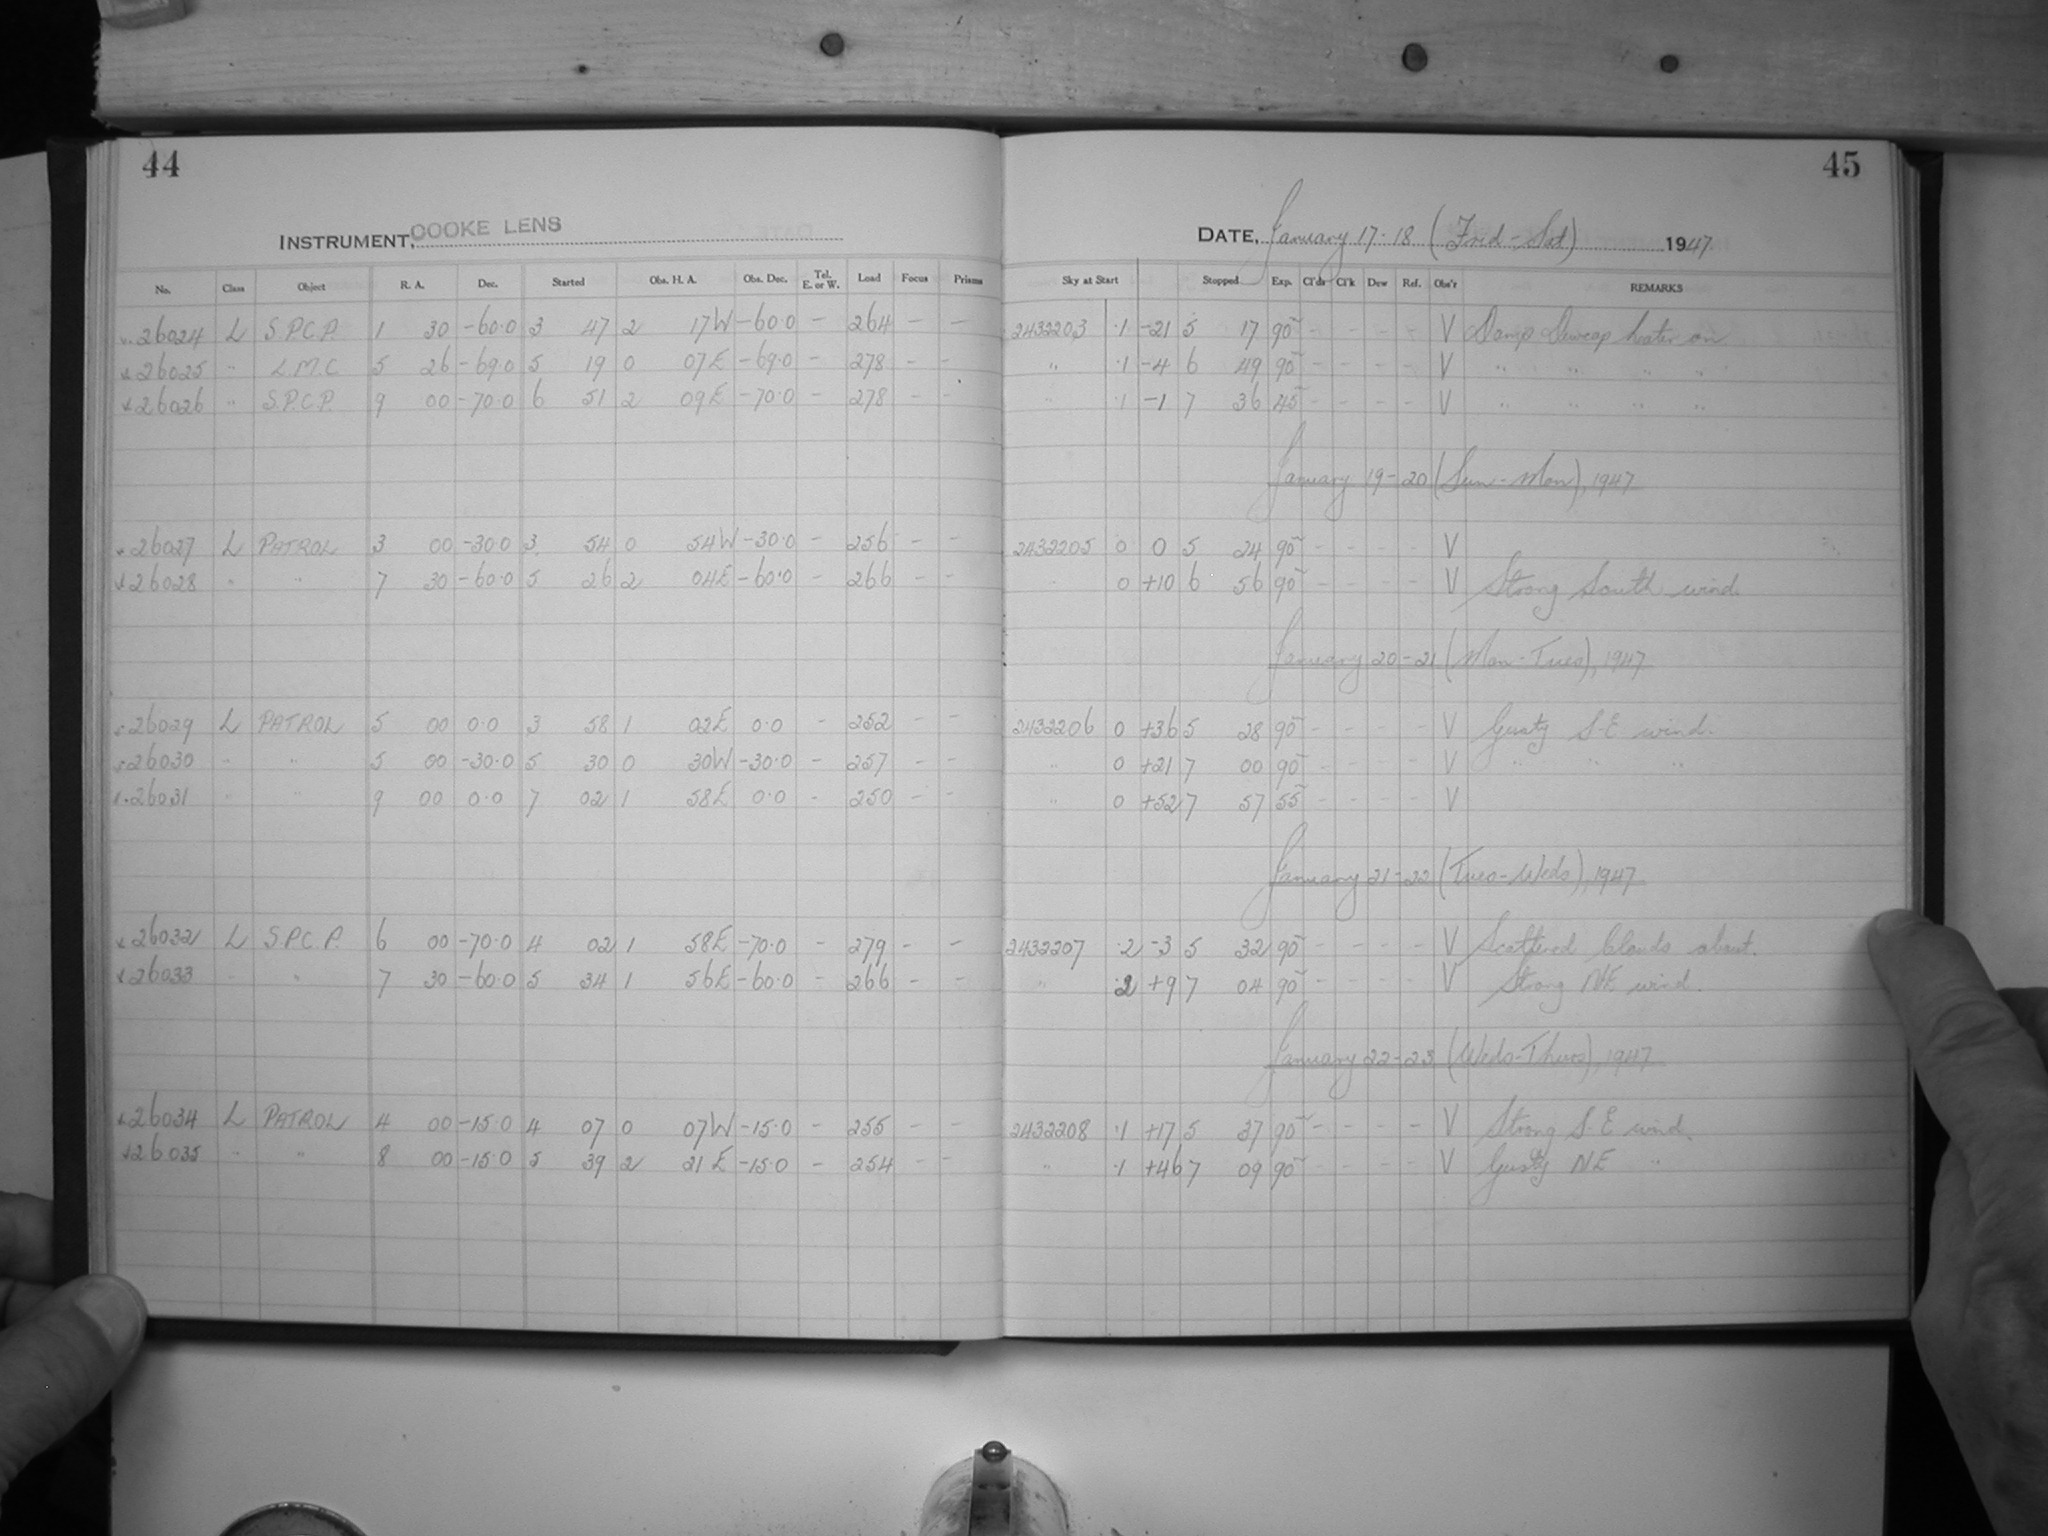 44
45
INSTRUMENT, COOKE LENS
DATE, January 17-18 (Frid-Sat) 1947
No. Class Object R. A. Dec. Started Obs. H. A. Obs. Dec. Tel. E. or W. Load Focus Prisms Sky at Start Stopped Exp. Cl'ds Cl'k Dew Ref. Obs'r REMARKS
26024 L S.P.C.P. 1 30 -60.0 3 47 2 17W -60.0 - 264 - - 2432203 .1 -21 5 17 90 - - - - V Damp Dewcap heater on
26025 " L.M.C 5 26 -69.0 5 19 0 07E -69.0 - 278 - - " .1 -4 6 49 90 - - - - V " " " "
26026 " S.P.C.P. 9 00 -70.0 6 51 2 09E -70.0 - 278 - - " .1 -1 7 36 45 - - - - V " " " "
January 19-20 (Sun-Mon), 1947
26027 L PATROL 3 00 -30.0 3 54 0 54W -30.0 - 256 - - 2432205 0 0 5 24 90 - - - - V
26028 " " 7 30 -60.0 5 26 2 04E -60.0 - 266 - - " 0 +10 6 56 90 - - - - V Strong South wind.
January 20-21 (Mon-Tues), 1947
26029 L PATROL 5 00 0.0 3 58 1 02E 0.0 - 252 - - 2432206 0 +36 5 28 90 - - - - V Gusty S-E wind.
26030 " " 5 00 -30.0 5 30 0 30W -30.0 - 257 - - " 0 +21 7 00 90 - - - - V " " "
26031 " " 9 00 0.0 7 02 1 58E 0.0 - 250 - - " 0 +52 7 57 55 - - - - V
January 21-22 (Tues-Weds), 1947
26032 L S.P.C.P. 6 00 -70.0 4 02 1 58E -70.0 - 279 - - 2432207 .2 -3 5 32 90 - - - - V Scattered Clouds about.
26033 " " 7 30 -60.0 5 34 1 56E -60.0 - 266 - - " .2 +9 7 04 90 - - - - V Strong NE wind.
January 22-23 (Weds-Thurs), 1947
26034 L PATROL 4 00 -15.0 4 07 0 07W -15.0 - 255 - - 2432208 .1 +17 5 37 90 - - - - V Strong S-E wind.
26035 " " 8 00 -15.0 5 39 2 21E -15.0 - 254 - - " .1 +46 7 09 90 - - - - V Gusty NE "